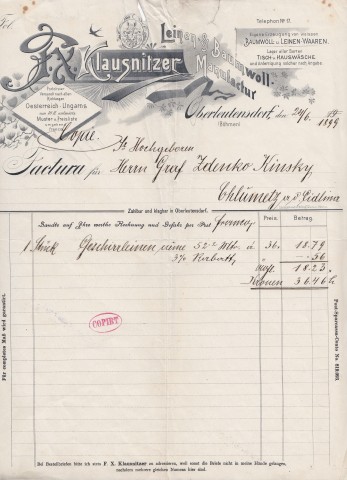 Telephon Nr. 17.
F.X. Klausnitzer
Leinen- & Baumwoll-
Manufactur
Eigene Erzeugung von weissen
BAUMWOLL U. LEINEN-WAAREN.
Lager aller Sorten
TISCH U. HAUSWÄSCHE
und Anfertigung solcher nach Angabe.
Oesterreich-Ungarns
Muster u. Preisliste
Oberleutensdorf, den 24/6 1899
(Böhmen)
Copie.
Sr Hochgeboren
Factura für Herrn Graf Zdenko Kinsky,
Chlumetz a. d. Cidlina
Zahlbar und klagbar in Oberleutensdorf.
Sandte auf Ihre werthe Rechnung und Gefahr per Post
Preis.
Betrag.
1 Stück Geschirrleinen 52 à 36. 18.79
3% Rabatt —.56
18.23
Kronen 36.46
COPIRT
Für completes Maß wird garantirt.
Bei Bestellbriefen bitte ich stets F. X. Klausnitzer zu adressiren, weil sonst die Briefe nicht in meine Hände gelangen,
nachdem mehrere gleichen Namens hier sind.